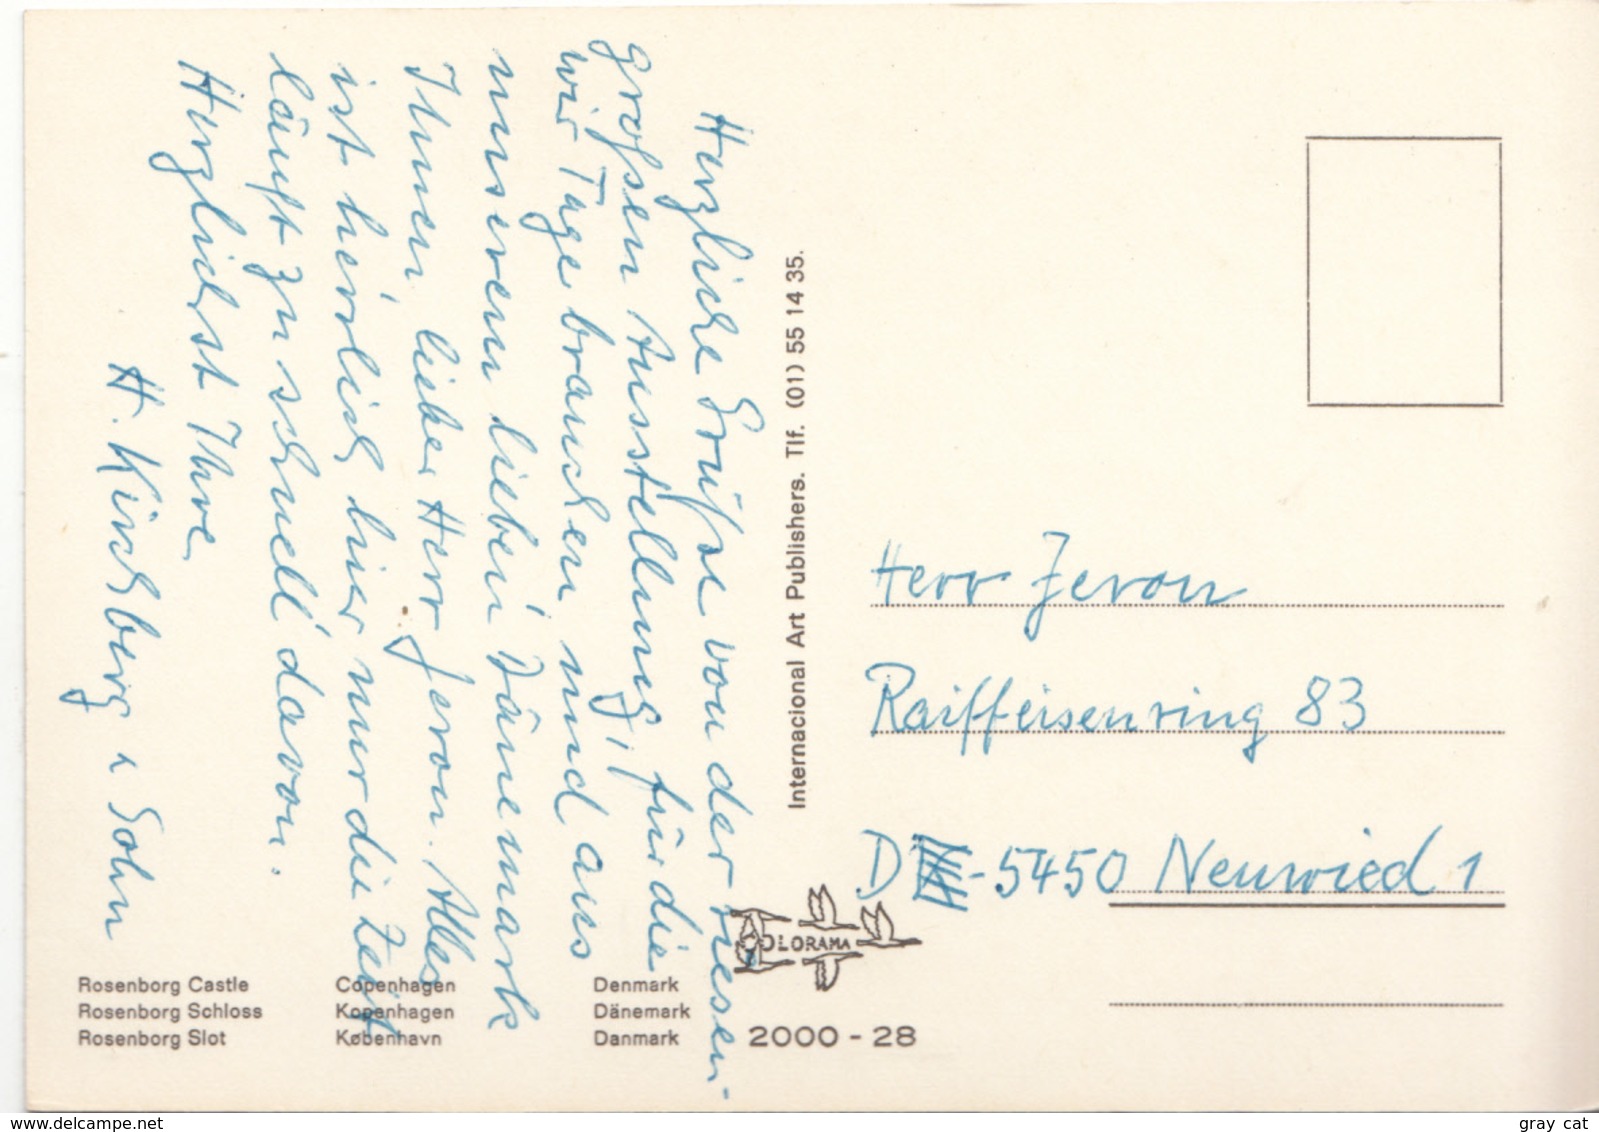 Herzliche Grüße von der riesen-
großen Ausstellung, für die
wir Tage brauchen und aus
unserem lieben Dänemark
Ihnen, lieber Herr Jeron. Alles
ist herrlich hier nur die Zeit
läuft zu schnell davon.
Herzlichst Ihre
H. Kirchberg & Sohn
Internacional Art Publishers. Tlf. (01) 55 14 35.
Herr Jeron
Raiffeisenring 83
D -5450 Neuwied 1
COLORAMA
Rosenborg Castle Copenhagen Denmark
Rosenborg Schloss Kopenhagen Dänemark
Rosenborg Slot København Danmark
2000 - 28
delcampe.net
gray_cat